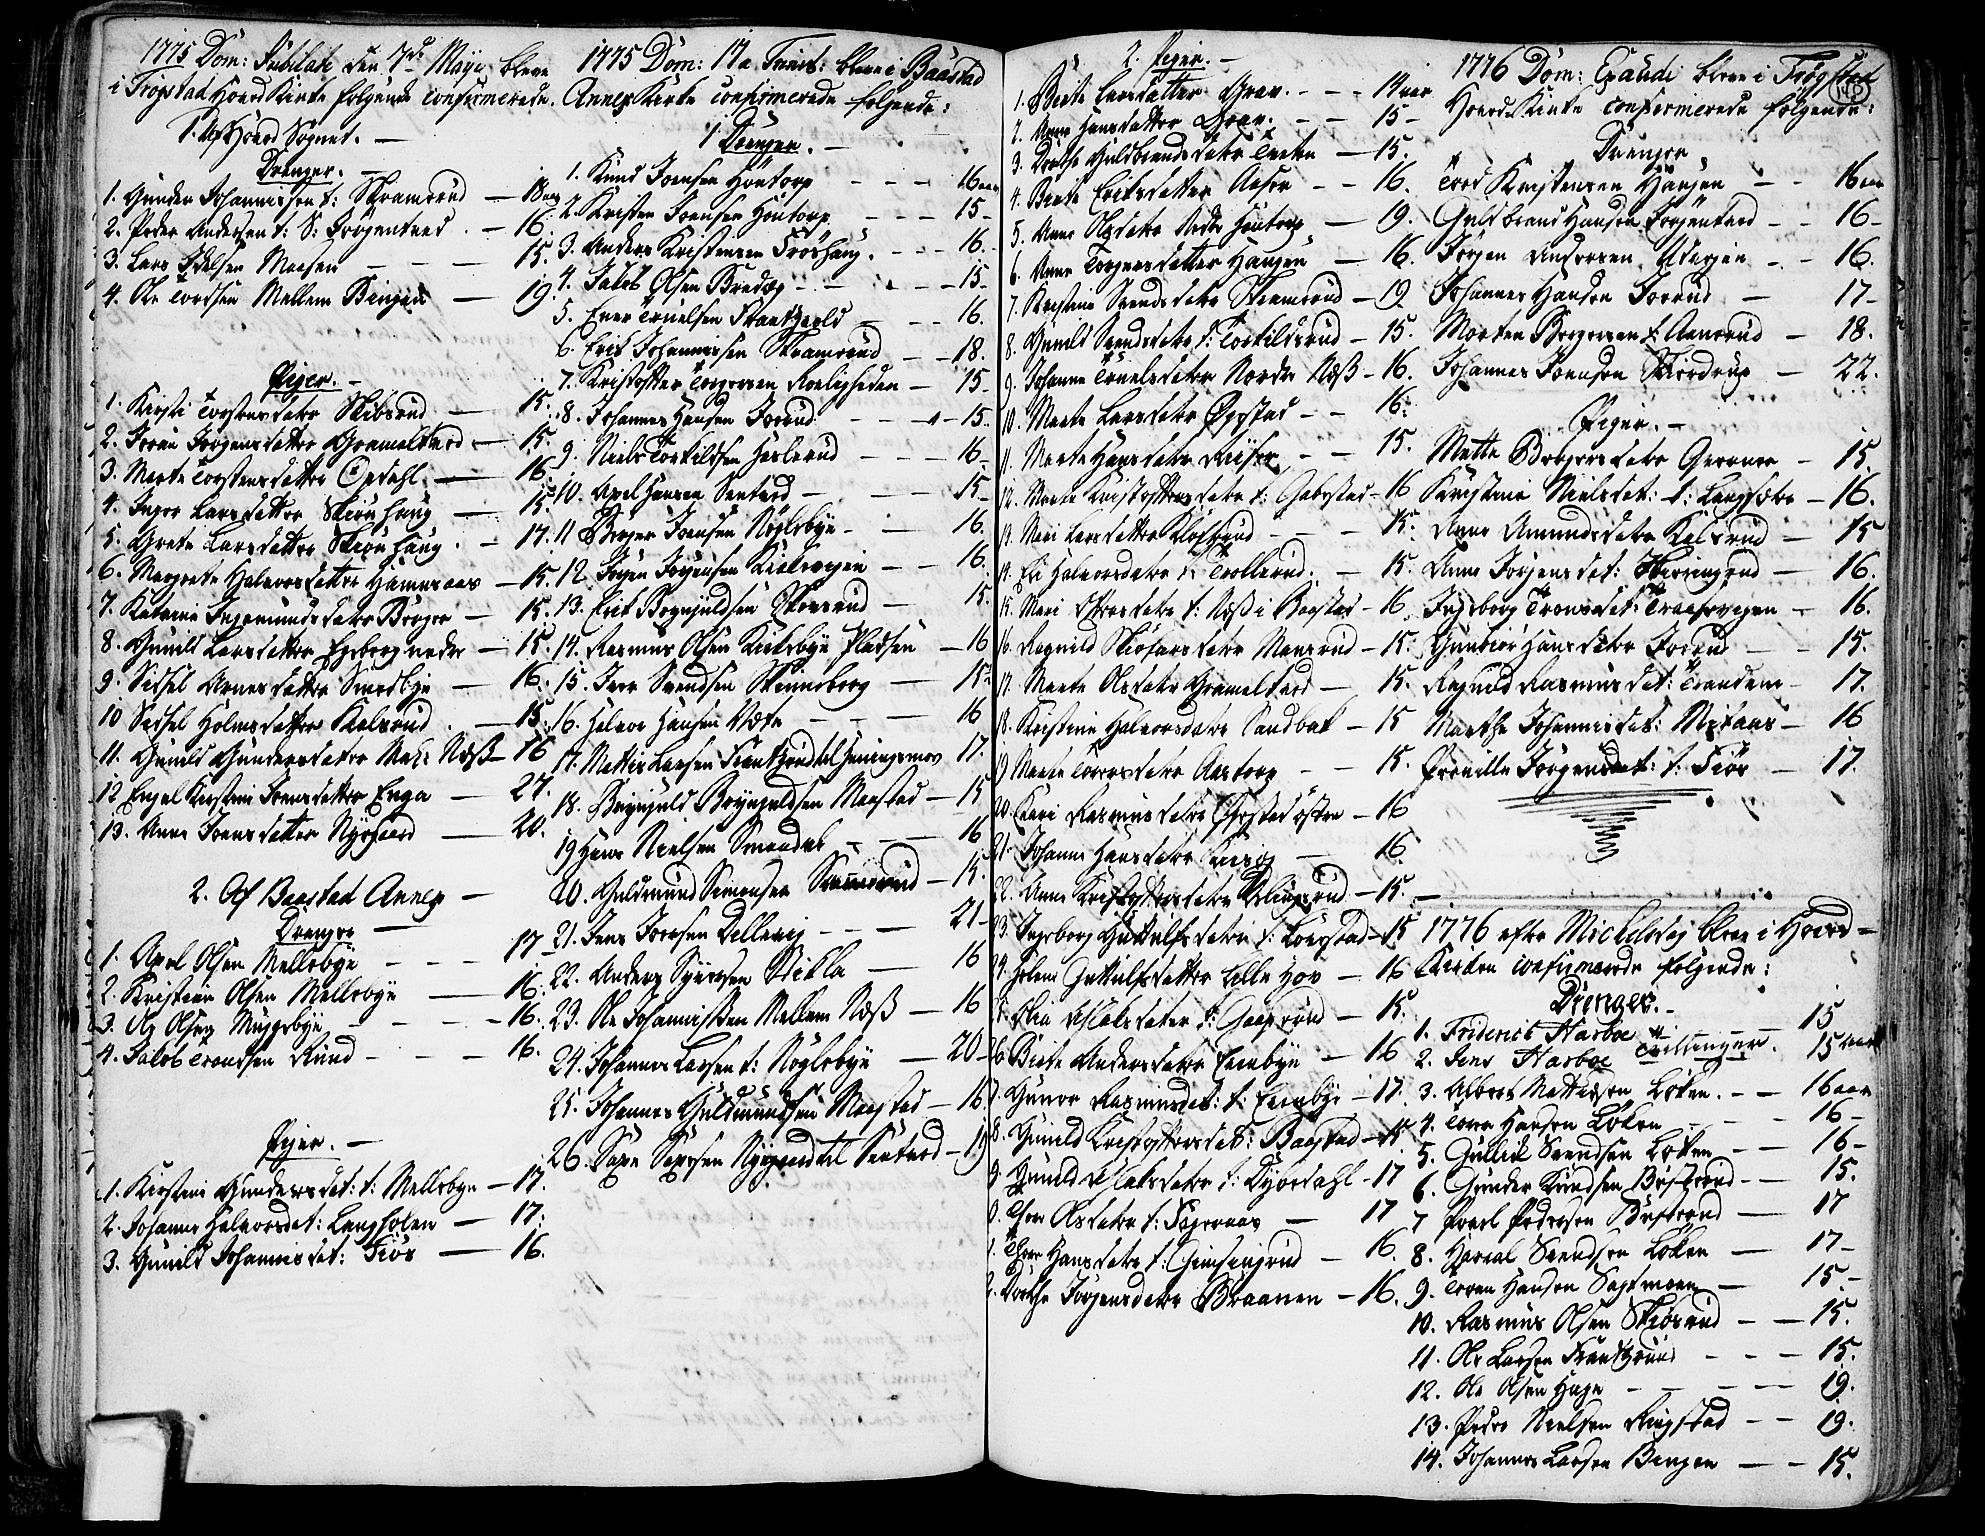 1775 Dom: Jubilate den 7de Maji bleve
i Trøgstad Hoved Kirke følgende Confirmerede.
1. Af Hoved Sognet. —
Drenger. —
1. Gunder Johannisen t: Skramrud — 18 aar
2. Peder Andersen t: S: Jørgentved. — 16.
3. Lars Edelsen Moesen — — 15.
4. Ole Tordsen Mellem Bingen — 19.
Piger. —
1. Kirsti Torstensdatter Skibsrud — 15.
2. Joran Jørgensdatter Gramelterd — 15.
3. Marte Torstensdatter Opdahl. — 16
4. Inger Larsdatter Skiønhaug — 15.
5. Grete Larsdatter Skiønhaug. — 17.
6. Margrete Halvorsdatter Hammeraas — 15.
7. Katarine Ingemundsdatter Borger — 15.
8. Gunild Larsdatter Egeberg neder — 15.
9. Sidsel Arnesdatter Smedbye — 16.
10 Sidsel Holmsdatter Kielsrud. — 15.
11. Gunild Gundersdatter Mel: Næss — 16
12 Engel Kirstine Joensdatter Enga — 27.
13. Anne Joensdatter Nygaard — 20.
2. Af Baastad Annex —
Drenger —
1. Axel Olsen Mellebye — — 17
2. Kristian Olsen Mellebye — 16.
3. Ole Olsen Myggebye — — 16.
4. Jakob Trondsen Rund — — 16.
Piger. —
1. Kirstine Gundersdet: t: Mellebye — 17.
2. Johanne Halvorsdet: Langholen — 17.
3. Gunild Johannisdet: Fiøs — 16.
1775 Dom: 17 a Trinit: bleve i Baastad
Annex Kirke Confirmerede følgende:
1 Drenger. —
1. Knud Joensen Høntorp — — 16 aar
2. Kristen Joensen Høntorp — — 15 —
3. Anders Kristensen Frøshaug. — 16.
4. Jakob Olsen Bredeg — — 15 —
5. Even Truelsen Frantzgeeld — — 16.
6. Erik Johannissen Skramrud — — 18.
7. Kristoffer Torgersen Roeligheden — 15 —
8. Johannes Hansen Jorrud — — 15.
9. Niels Torkildsen Heslerud — — 16 —
10. Axel Hansen Senterd — — 15 —
11 Borger Joensen Nøglebye — — 16.
12 Jørgen Jørgensen Kielsvegen — — 16.
13. Erik Brynjuldsen Skarsrud — 15.
14. Rasmus Olsen Kirkebye Pladsen — 16
15. Iver Svendsen Stenneborg — 15.
16. Halvor Hansen Næse — — 16
17. Mattis Larsen Frantzgied til Heningsmoe 17
18. Brynjuld Brynjuldsen Maastad — 15
19 Hans Nielsen Smaadal — — 16
20. Guldmund Simensen Skramrud — 15.
21. Jens Joensen Dellevig — — 21 —
22. Anders Syversen Stikla — 16
23. Ole Johannissen Mellem Næss — 16
24. Johannes Larsen t: Nøglebye — 20 —
25. Johannes Guldmundsen Maastad — 16
26. Saxe Saxesen Nygaard til Senterd — 19
2. Piger. —
1. Birte Larsdatter Grav. — — 14 aar
2. Anne Hansdatter Grav. — — 15 —
3. Dorthe Guldbrandsdatter Tveten — 15.
4. Birte Eriksdatter Aaser — — 16.
5. Anne Olsdatter Nedre Hontorp — 19.
6. Anne Torgersdatter Haugen — 16.
7. Kirstine Svendsdatter Skramrud — 19
8. Gunild Svendsdatter t: Torkildsrud — 15.
9. Johanne Truelsdatter Nordre Næss — 16.
10. Marte Larsdatter Øgstad — — 16.
11. Marte Hansdatter Riiser — — 15.
12. Marte Kristoffersdatter t: Gabestad — 16
13. Mari Larsdatter Klokkerud — — 15.
14. Eli Halvorsdatter t: Trollerud. — 15.
15. Mari Olesdatter t: Næss i Baastad — 16
16. Ragnild Kristiansdatter Mansrud — 15.
17. Marte Olsdatter Gramelterd — 15.
18. Kirstine Halvorsdatter Sandbæk — 15
19 Marte Torersdatter Aastorp — — 15.
20. Kari Rasmusdatter Gregstad østre — 16
21. Johanne Hansdatter Kirsrg — 16.
22. Anne Kristoffersdatter Klingsrud — 15. —
23. Ingeborg Guttulfsdatter t: Lørstad — 15
24. Helene Guttulfsdatter Lille Hov — 16
25. Olea Eskelsdatter t: Gaasrud — 15.
26 Birte Andersdatter Trinbye — 16
27. Gunor Rasmusdet: t: Trinbye — 17.
28. Gunild Kristoffersdet: Baastad — 15
29. Gunild Eskelsdatter t: Dyredahl — 17
30. Thore Olsdatter t: Fageraas — 17
31. Thore Hansdatter t: Gimsingrud — 16.
32. Dorthe Jørgensdatter Braanen — 16.
1776 Dom: Exaudi bleve i Trøgstad
Hoved Kirke Confirmerede følgende:
140
Drenger
Tord Kristensen Haugen — — 16 aar
Guldbrand Hansen Jørgentvedt — — 16 —
Jørgen Andersen Udegien — — 16.
Johannes Hansen Jorrud — 17 —
Morten Borgersen t: Aamrud — 18.
Johannes Joensen Skierdrup — 22.
Piger. —
Mette Borgersdatter Gierner — 15.
Kirstine Nielsdet: t: Langsæter — 16.
Anne Amundsdatter Kielsrud — 15
Anne Jørgensdet: Skieringrud — 16.
Ingeborg Tronsdet: Træsvegen — 16.
Gunbior Hansdatter Jorrud — — 15.
Ragnild Rasmusdet: Trandem — 17.
Marthe Johannisdet: Mysaas — 16
Pernille Jørgensdet: t: Fiøs — 17.
1776 efter Michelsdag bleve i Hoved —
Kirken Confirmerede følgende:
Drenger. —
1. Friderick Harboe — 15
2. Jens Harboe Tvillinger. — 15 aar
3. Albret Mattissen Løken. — — 16 aar
4. Tore Hansen Løken — — 16 —
5. Gullik Svendsen Løken — — 16 —
6. Gunder Knudsen Buserud — — 15.
7 Poul Pedersen Buserud — 17
8. Harald Svendsen Løken — 17 —
9. Toren Hansen Sagtmoen — 15 —
10. Rasmus Olsen Skiørud — — 15.
11. Ole Larsen Frantzrud — — — 15.
12. Ole Olsen Hage — — — 19.
13. Peder Nielsen Ringstad — — 19.
14. Johannes Larsen Bingen — — 15.